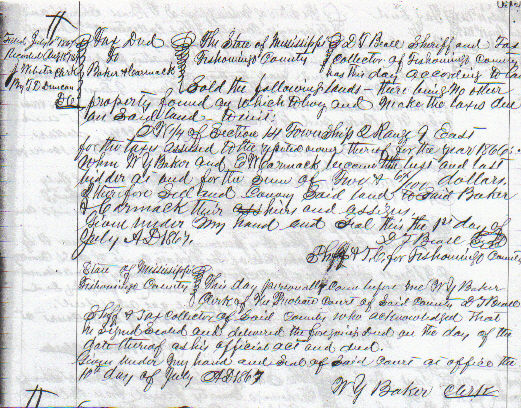 Tax Deed
To
Baker & Carmack
The State of Mississippi
Tishomingo County
I L T Beall Sheriff and Tax
Collector of Tishomingo County
has this day according to law
Sold the following lands - there being no other
property found by which to levy and make the taxes due
on Said land to wit:
N W 1/4 of Section 14 Township 2 Range 9 East
for the taxes assessed to the unknown owner thereof for the year 1866:
When W Y Baker and E W Carmack became the best and last
bidder at and for the Sum of Two & /100 dollars.
I therefore Sell and Convey Said land to Said Baker
& Carmack their heirs and assigns
Given under My hand and Seal this the 1st day of
July A.D 1867.
L T Beall Seal
Shff & T.C. for Tishomingo County
State of Mississippi
Tishomingo County
This day personally Came before me W Y Baker
Clerk of the Probate Court of Said County L T Beall
Shff & Tax Collector of Said County who acknowledged that
he Signed Sealed and delivered the foregoing Deed on the day of the
date thereof as his official act and deed.
Given Under my hand and Seal of Said Court at office the
10th day of July A.D 1867
W Y Baker Clerk